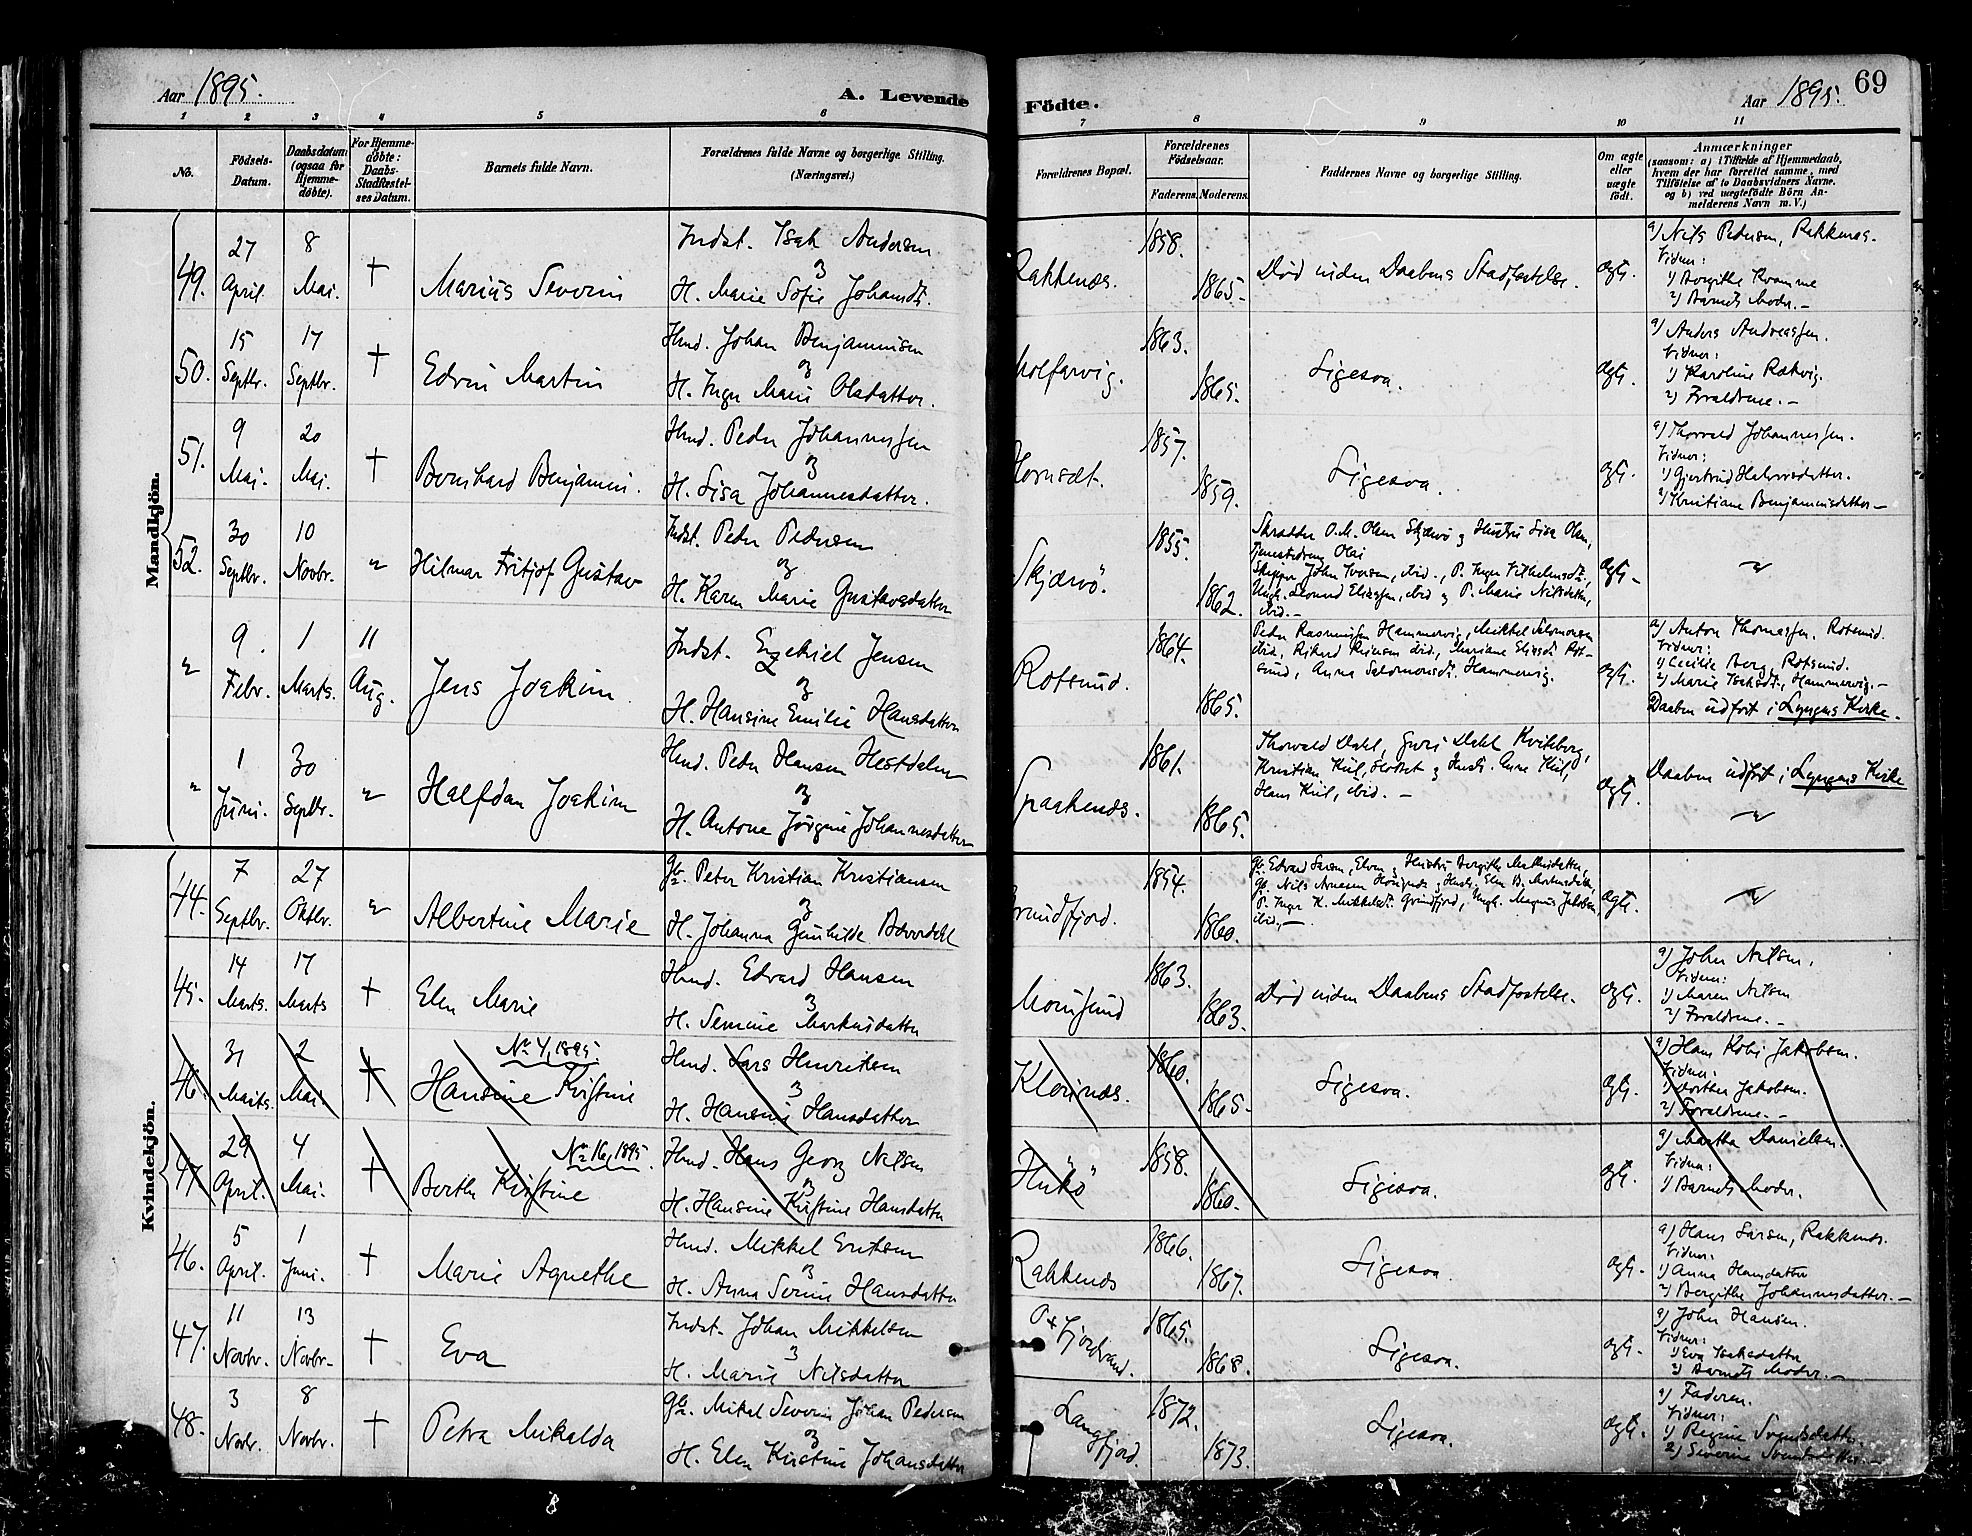 Aar 1895.
A. Levende
Födte.
Aar 1895.
69
1 2 3 4 5 6 7 8 9 10 11
No.
Födsels-
Datum.
Daabsdatum
(ogsaa for
Hjemme-
döbte).
For Hjemme-
döbte:
Daabs-
Stadfæstel-
ses Datum.
Barnets fulde Navn.
Forældrenes fulde Navne og borgerlige Stilling.
(Næringsvei.)
Forældrenes Bopæl.
Forældrenes
Födselsaar.
Faderens. Moderens.
Faddernes Navne og borgerlige Stilling.
Om ægte
eller
uægte
födt.
Anmærkninger
(saasom: a) i Tilfælde af Hjemmedaab,
hvem der har forrettet samme, med
Tilföielse af to Daabsvidners Navne.
og b) ved uægtefödte Börn An-
melderens Navn m. V.)
Mandkjön.
49. 27 April. 8 Mai. † Marius Severin
Indst. Isak Andersen
og
H. Marie Sofie Johansdt.
Rakkenæs. 1858. 1865.
Död inden Daabens Stadfæstelse.
ægte.
a) Nils Pedersen, Rakkenæs.
Vidner:
1) Bergithe Kramme
2) Barnets Moder.—
50. 15 Septbr. 17 Septbr. † Edvin Martin
Hmd. Johan Benjaminsen
og
H. Inger Marie Olsdatter.
1863. 1865.
Ligesaa.
ægt.
a) Anders Andreassen.
Vidner:
1) Karoline Rakvig.
2) Forældrene.—
51. 9 Mai. 20 Mai. † Bernhard Benjamin.
Hmd. Peder Johannessen
og
H. Lisa Johannesdatter.
1857. 1859.
Ligesaa.
ægt.
a) Thorvald Johannessen.
Vidner:
1) Gjertrud Halvorsdatter.
2) Kristiane Benjaminsdatter—
52. 30 Septbr. 10 Novbr. " Hilmar Fritjof Gustav
Indst. Peder Pedersen
og
H. Karen Marie Gustavsdatter
Skjærvö. 1855. 1862.
Skrædder O. M. Olsen Skjærvö og Hustru Lisa Olsen,
Skipper John Iversen, ibid., P. Inger Vilhelmsdt.,
Ungk. Leonard Eliassen, ibid og P. Marie Nilsdatter,
ibid.—
ægt.
"
" 9. Febr. 1 Marts. 11 Aug. Jens Joakim
Indst. Ezekiel Jensen
og
H. Hansine Emilie Hansdatter
Rotsund. 1864. 1865.
Peder Rasmussen Hammervig, Mikkel Salomonsen
ibid, Rikard ibid., Mariane Eliasdt. Rot-
sund, Anna Salomonsdt. Hammervig.
ægt.
a) Anton Thomassen. Rotsund.
Vidner:
1) Cecilie Berg, Rotsund.
2) Marie Isaksdt., Hammervig.—
Daaben udfört i Lyngens Kirke.
" 1 Juni. 30 Septbr. " Halfdan Joakim
Hmd. Peder Hansen Hestdalen
og
H. Antone Jörgine Johannesdatter
Spaakenæs. 1861. 1865.
Thorvald Dahl, Guri Dahl Kviteberg,
Kristian Kiil, og Hustr. Anne Kiil,
Hans Kiil, ibid.—
ægt.
Daaben udfört i Lyngens Kirke
"
Kvindekjön.
44. 7 Septbr. 27 Oktbr. " Albertine Marie
Gbr. Peter Kristian Kristiansen
og
H. Johanna Gunhilde Bæverdahl
Grundfjord. 1854. 1860.
Gbr. Edvard Larsen, Elven og Hustru Bergithe Mathisdatter,
Gbr. Nils Arnesen og Hustr. Elen B. Mortensdatter,
P. Inger K. Mikkelsdt. Grundfjord, Ungk. Magnus Jakobsen,
ibid.—
ægt.
"
45. 14 Marts. 17 Marts † Elen Marie
Hmd. Edvard Hansen
og
H. Semine Markusdatter
1863. 1863.
Död inden Daabens Stadfæstelse.
ægt.
a) John Nilsen.
Vidner:
1) Maren Nilsen
2) Forældrene.—
46. 31 Marts. 2 Mai † No 4, 1895.
Hansine Kristine
Hmd. Lars Henriksen
og
H. Hansine Hansdatter
1860. 1865.
Ligesaa.
ægt.
a) Hans Jakobsen.
Vidner:
1) Dorthea Jakobsen.
2) Forældrene.—
47. 29 April. 4 Mai. † No 16, 1895.
Berthe Kristine
Hmd. Hans Georg Nilsen
og
H. Hansine Kristine Hansdatter
1858. 1860.
Ligesaa.
ægt.
a) Martha Danielsen.
Vidner:
1) Barnets Moder.
46. 5 April. 1 Juni. † Marie Agnethe
Hmd. Mikkel Eriksen
og
H. Anna Serine Hansdatter
Rakkenæs 1866. 1867.
Ligesaa.
ægt.
a) Hans Larsen, Rakkenæs.
Vidner:
1) Anna Hansdatter
2) Bergithe Johannesdatter.—
47. 11 Novbr. 13 Novbr. † Eva
Indst. Johan Mikkelsen
og
H. Marie Nilsdatter
Oxfjordvand. 1865. 1868.
Ligesaa.
ægt.
a) John Hansen.
Vidner:
1) Eva Isaksdatter
2) Barnets Moder.—
48. 3 Novbr. 8 Novbr. † Petra Mikalda
Gbr. Mikal Severin Johan Pedersen
og
H. Elen Kristine Johansdatter
Langfjord. 1872. 1873.
Ligesaa.
ægt.
a) Faderen.
Vidner:
1) Regine
2) Severine